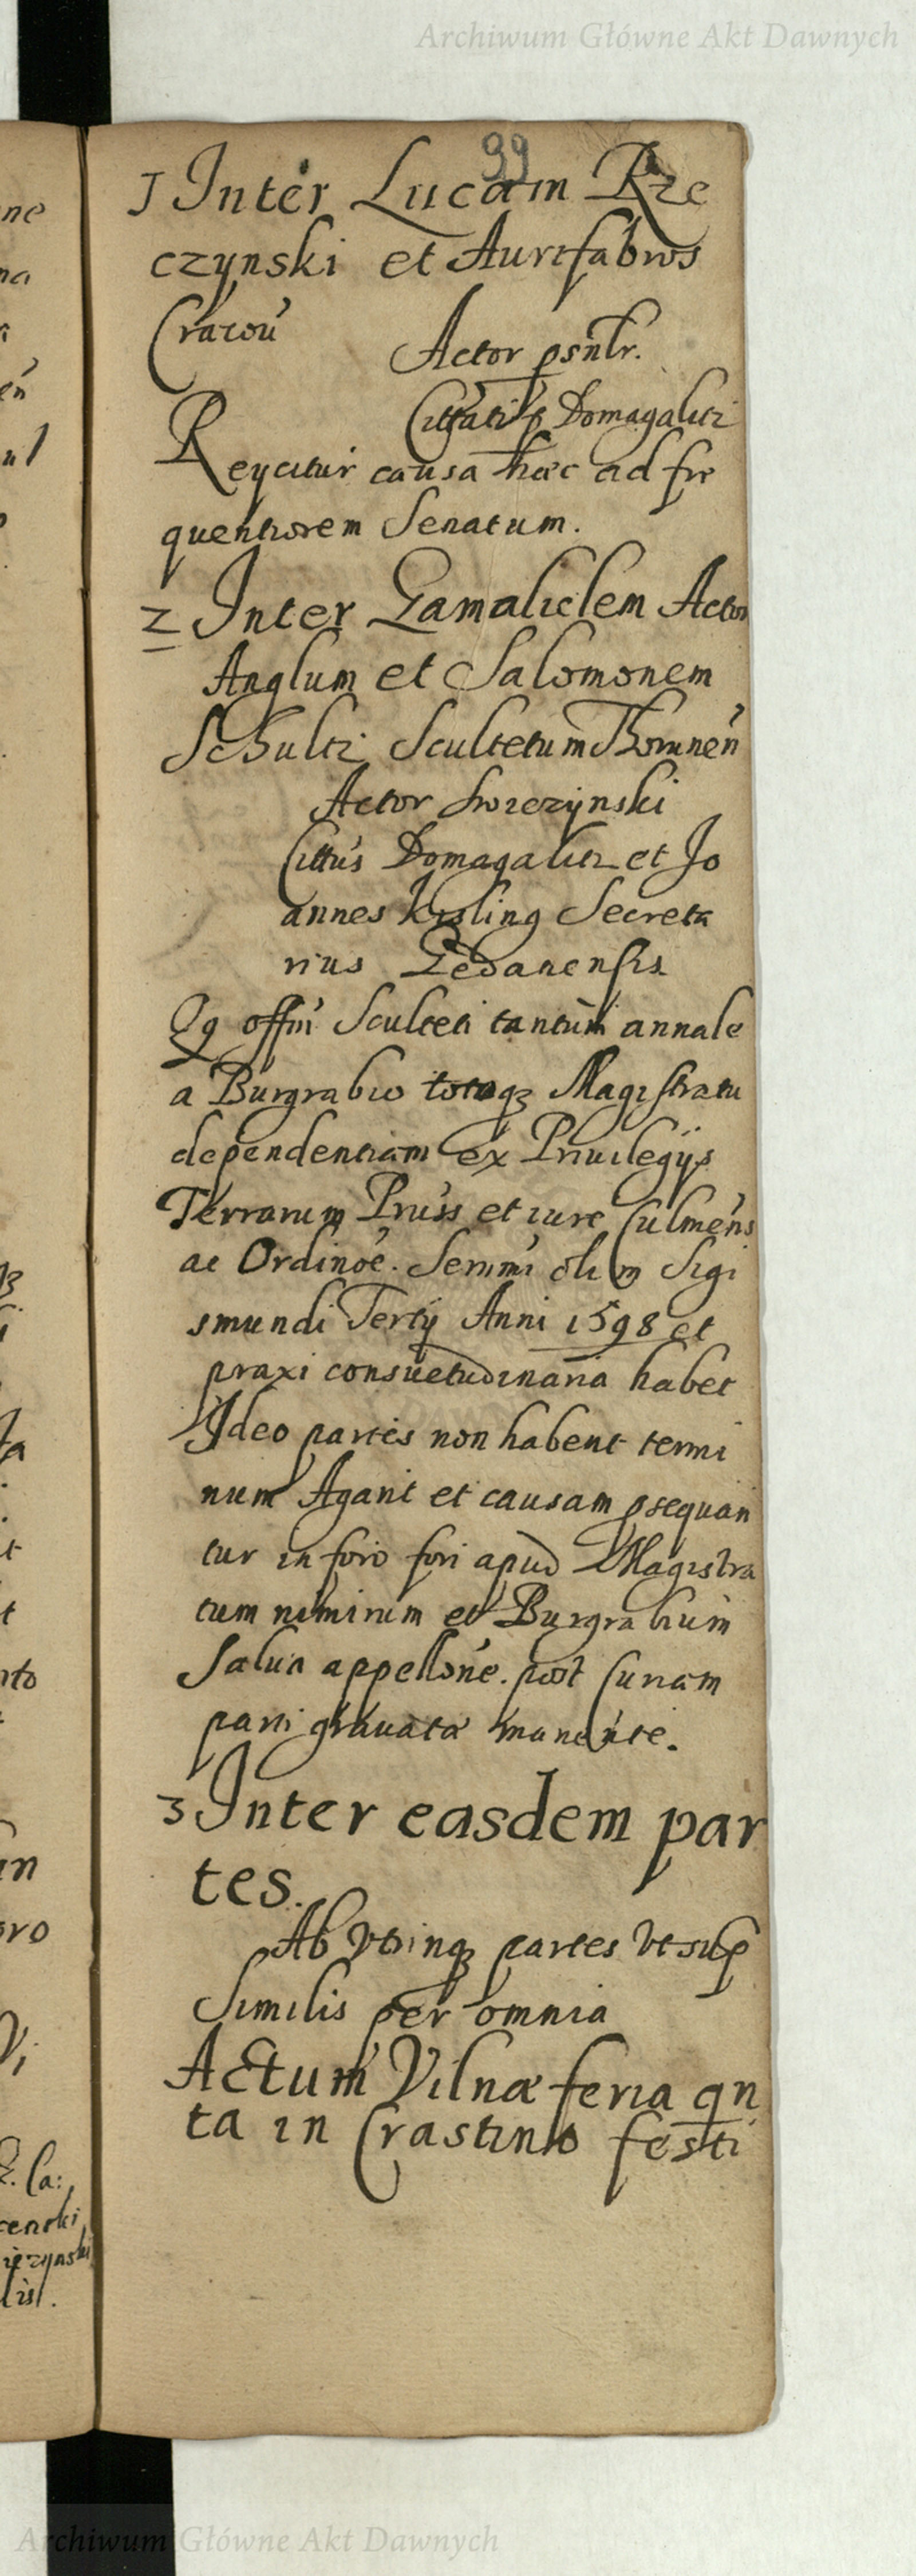 Archiwum Główne Akt Dawnych
99
1 Inter Lucam Rze
czynski et Aurifabros
Cracou
Actor psnlr.
Cittati p Domagalicz
Reycitur causa haec ad fre
quentiorem Senatum.
2 Inter Gamalielem Acton
Anglum et Salomonem
Schultz Scultetum Thorunen
Actor Swiezynski
Cittus Domagalicz et Jo
annes Kesling Secreta
rius Gedanensis
Qq offm Sculteti tantum annale
a Burgrabio totoqz Magistratu
dependentiam ex Priuilegijs
Terrarum Pruss et iure Culmens
ac Ordinoe. Sermi olim Sigi
smundi Tertij Anni 1598 et
praxi consuetudinaria habet
Ideo partes non habent termi
num Agant et causam psequan
tur in foro fori apud Magistra
tum nimirum et Burgrabium
Salua appellone. post Curiam
parti grauatae manente.
3 Inter easdem par
tes.
Ab vtrinqz partes vt sup
Similis per omnia
Actum Vilnae feria qn
ta in Crastino festi
ne
na
en
ul
nto
in
oro
Archiwum Główne Akt Dawnych